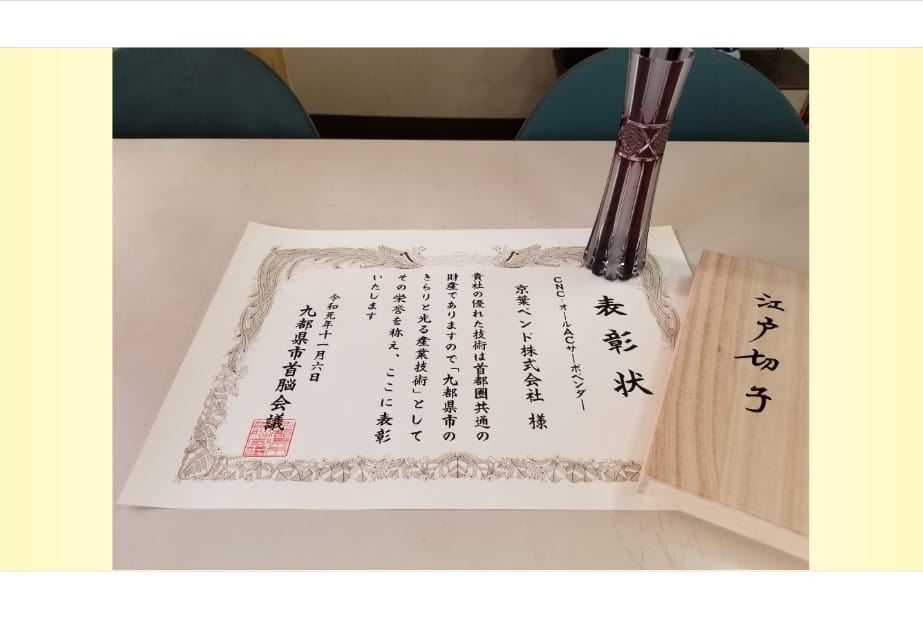 表彰状
CNC・オールACサーボベンダー
京葉ベンド株式会社 様
貴社の優れた技術は首都圏共通の
財産でありますので「九都県市の
きらりと光る産業技術」として
その栄誉を称え、ここに表彰
いたします
令和元年十一月六日
九都県市首脳会議
江戸切子